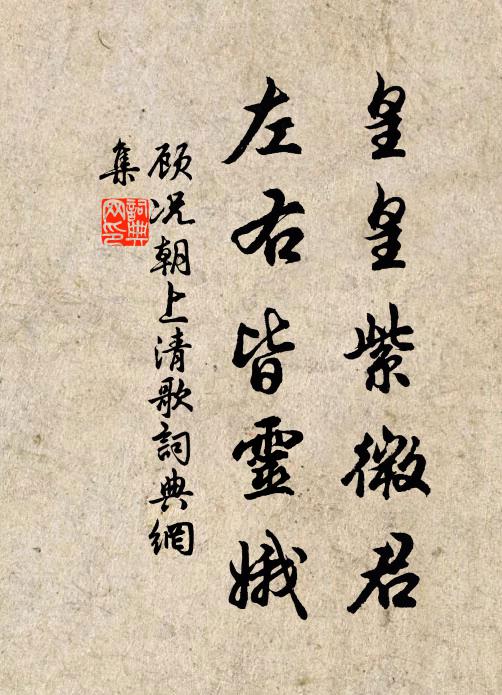 皇皇紫微君
左右皆靈娥
顾况朝上清歌詞典網
集
詞典網印